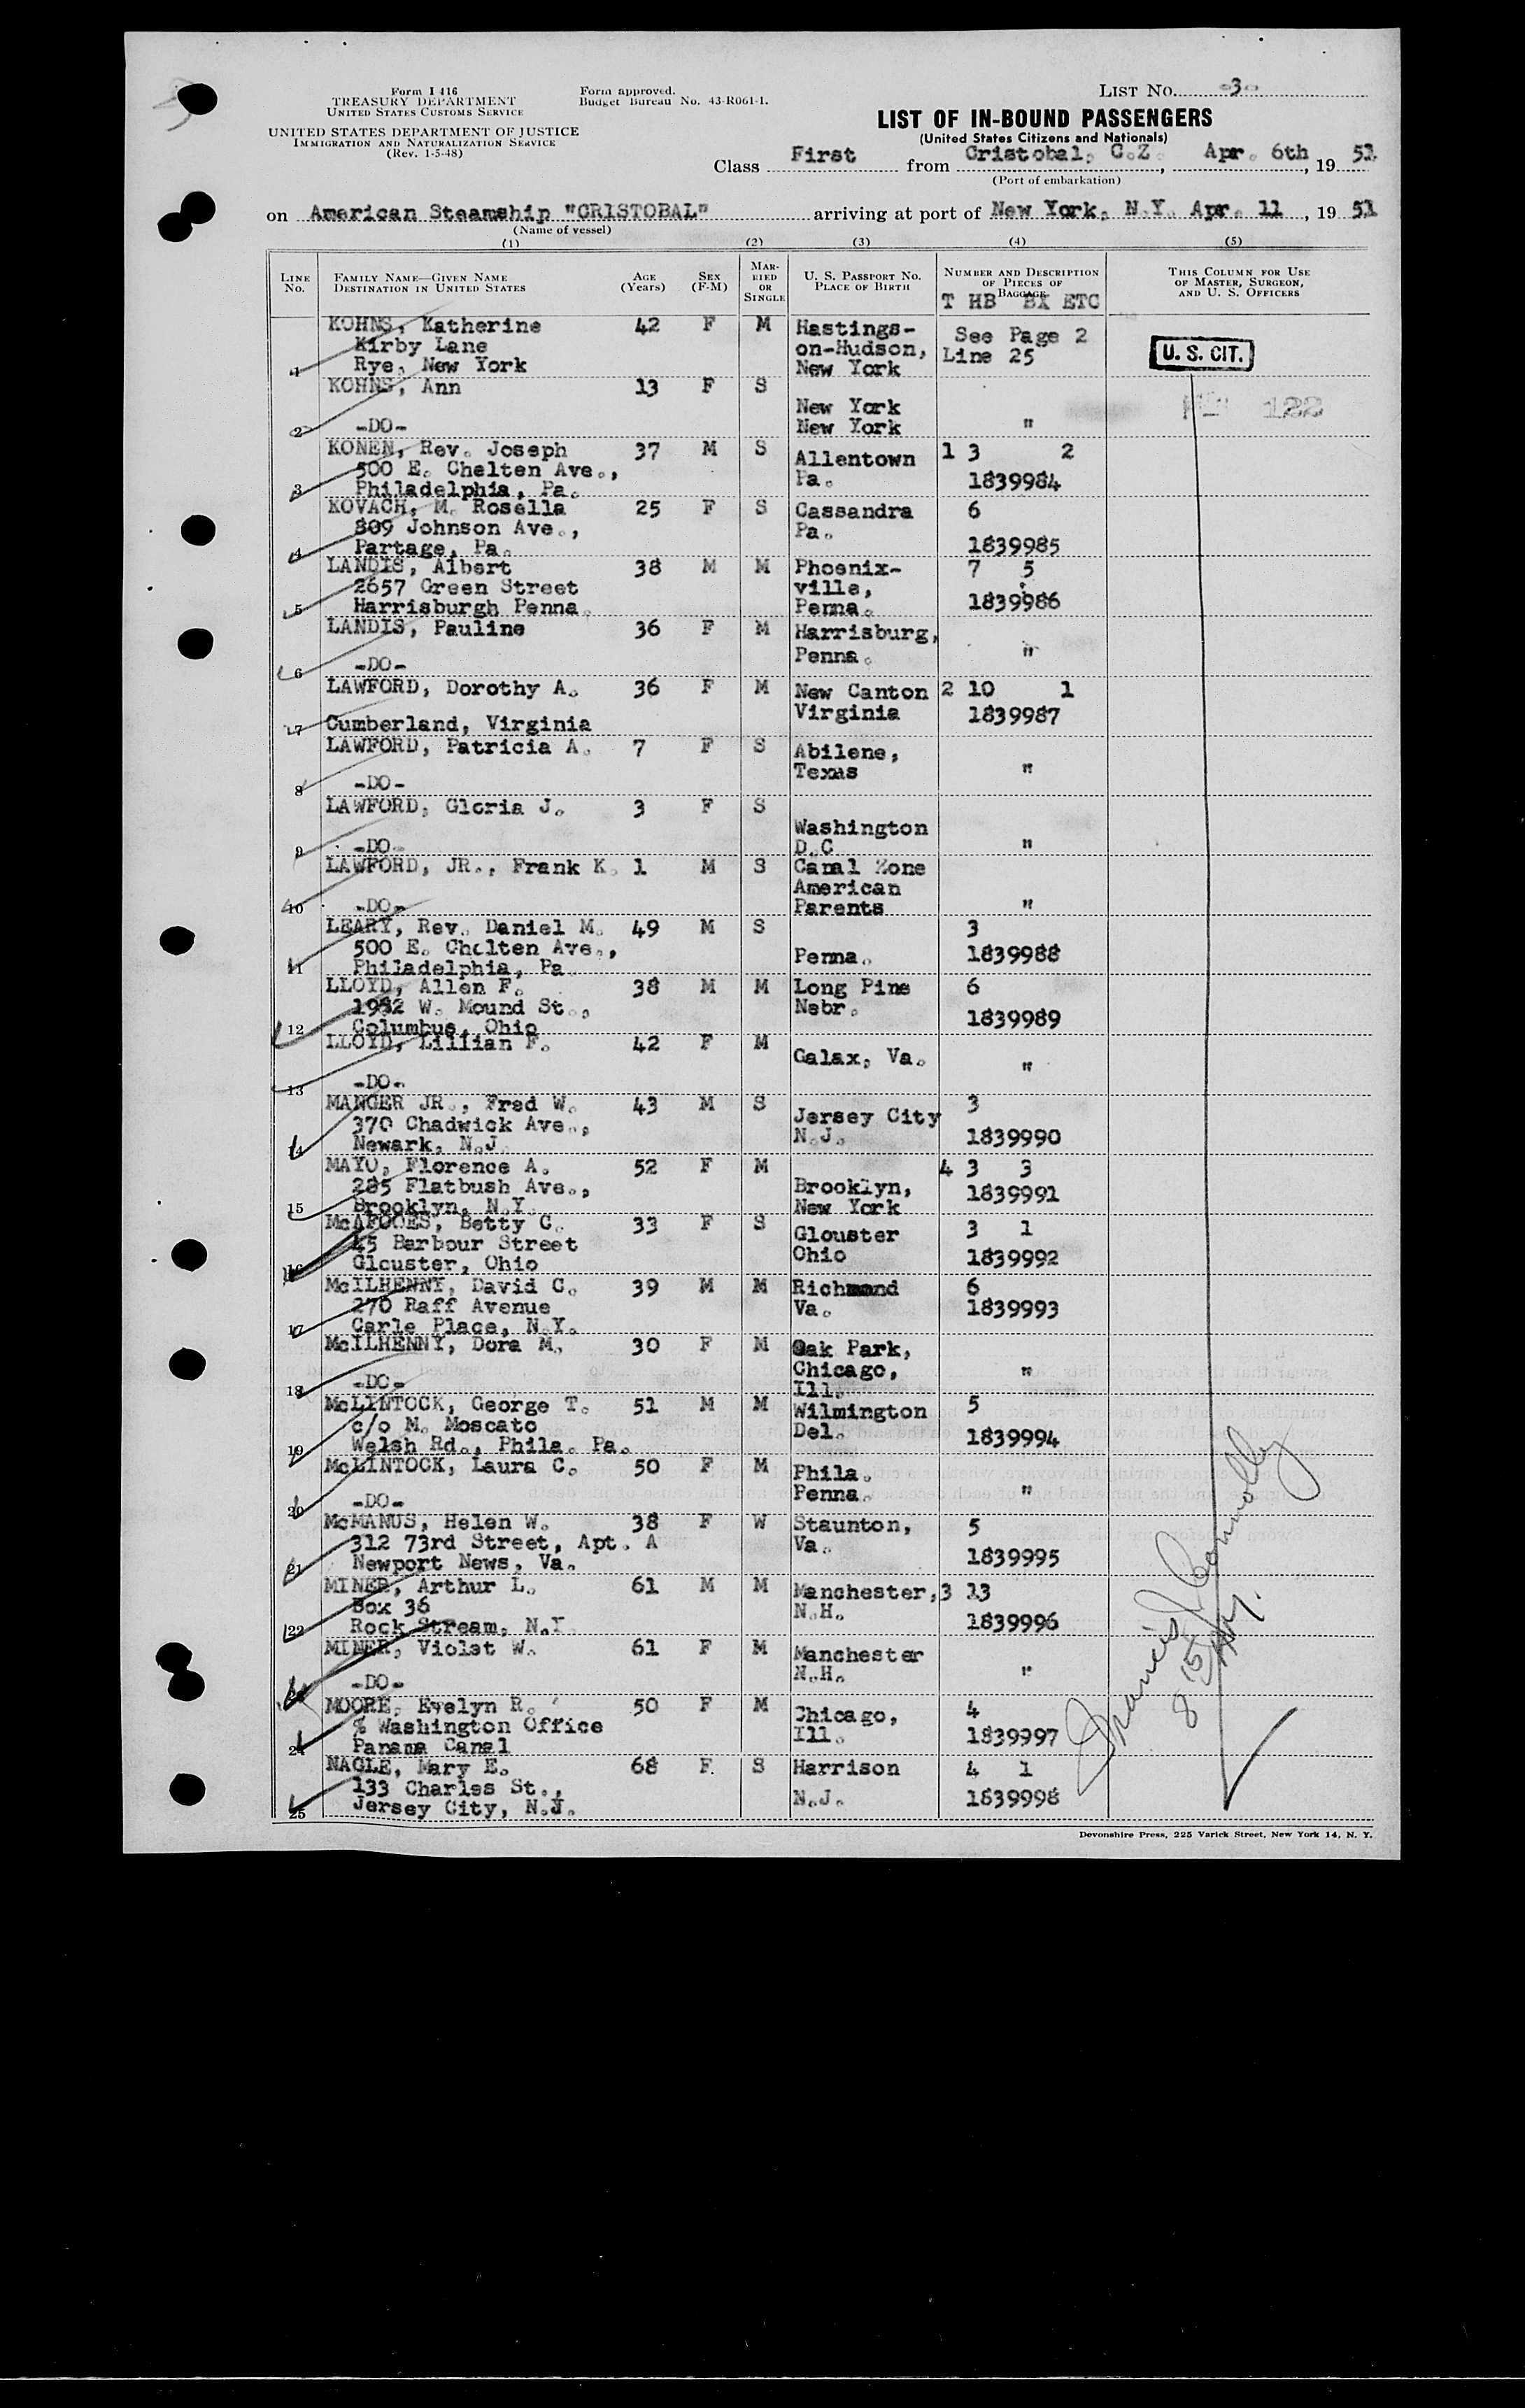 Form I 416
TREASURY DEPARTMENT
UNITED STATES CUSTOMS SERVICE
UNITED STATES DEPARTMENT OF JUSTICE
IMMIGRATION AND NATURALIZATION SERVICE
(Rev. 1-5-48)
Form approved.
Budget Bureau No. 43-R061-1.
LIST No. -3-
LIST OF IN-BOUND PASSENGERS
(United States Citizens and Nationals)
Class First from Cristobal, C.Z. Apr. 6th, 19 51
(Port of embarkation)
on American Steamship "CRISTOBAL" arriving at port of New York, N.Y. Apr. 11, 19 51
(Name of vessel)
(1) (2) (3) (4) (5)
LINE No. FAMILY NAME—GIVEN NAME DESTINATION IN UNITED STATES AGE (Years) SEX (F-M) MARRIED OR SINGLE U. S. PASSPORT NO. PLACE OF BIRTH NUMBER AND DESCRIPTION OF PIECES OF BAGGAGE THIS COLUMN FOR USE OF MASTER, SURGEON, AND U. S. OFFICERS
T HB BX ETC
KOHNS, Katherine 42 F M Hastings- See Page 2
Kirby Lane on-Hudson, Line 25 U. S. CIT.
1 Rye, New York New York
KOHNS, Ann 13 F S
New York 122
2 -DO- New York "
KONEN, Rev. Joseph 37 M S Allentown 1 3 2
500 E. Chelten Ave., Pa.
3 Philadelphia, Pa. 1839984
KOVACH, M. Rosella 25 F S Cassandra 6
809 Johnson Ave., Pa.
4 Partage, Pa. 1839985
LANDIS, Albert 38 M M Phoenix- 7 5
2657 Green Street ville,
5 Harrisburgh Penna. Penna. 1839986
LANDIS, Pauline 36 F M Harrisburg,
Penna. "
6 -DO-
LAWFORD, Dorothy A. 36 F M New Canton 2 10 1
Virginia 1839987
7 Cumberland, Virginia
LAWFORD, Patricia A. 7 F S Abilene,
Texas "
8 -DO-
LAWFORD, Gloria J. 3 F S
Washington
9 -DO- D.C "
LAWFORD, JR., Frank K. 1 M S Canal Zone
American
10 -DO- Parents "
LEARY, Rev. Daniel M. 49 M S 3
500 E. Chelten Ave., Penna. 1839988
11 Philadelphia, Pa
LLOYD, Allen F. 38 M M Long Pine 6
1952 W. Mound St., Nebr.
12 Columbus, Ohio 1839989
LLOYD, Lillian F. 42 F M
Galax, Va. "
13 -DO-
MANGER JR., Fred W. 43 M S 3
370 Chadwick Ave., Jersey City
14 Newark, N.J. N.J. 1839990
MAYO, Florence A. 52 F M 4 3 3
285 Flatbush Ave., Brooklyn, 1839991
15 Brooklyn, N.Y. New York
McAFOOES, Betty C. 33 F S Glouster 3 1
45 Barbour Street Ohio
16 Glouster, Ohio 1839992
McILHENNY, David C. 39 M M Richmond 6
270 Raff Avenue Va. 1839993
17 Carle Place, N.Y.
McILHENNY, Dora M. 30 F M Oak Park,
Chicago, "
18 -DO- Ill.
McLINTOCK, George T. 51 M M Wilmington 5
c/o M. Moscato Del.
19 Welsh Rd., Phila. Pa. 1839994
McLINTOCK, Laura C. 50 F M Phila.
20 -DO- Penna. "
McMANUS, Helen W. 38 F W Staunton, 5
312 73rd Street, Apt. A Va.
21 Newport News, Va. 1839995
MINER, Arthur L. 61 M M Manchester, 3 13
Box 36 N.H.
22 Rock Stream, N.Y. 1839996
MINER, Violet W. 61 F M Manchester
N.H. "
23 -DO-
MOORE, Evelyn R. 50 F M Chicago, 4
% Washington Office Ill.
24 Panama Canal 1839997
NAGLE, Mary E. 68 F. S Harrison 4 1
133 Charles St., N.J. 1839998
25 Jersey City, N.J.
Francis J Connolly
Devonshire Press, 225 Varick Street, New York 14, N. Y.